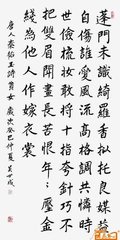 蓬門未識綺羅香擬托良媒益
自傷誰愛風流高格調共憐時
世儉梳妝敢將十指夸針巧不
把雙眉鬥畫長苦恨年々壓金
綫為他人作嫁衣裳
唐人秦韜玉詩貧女 歲次癸巳仲夏